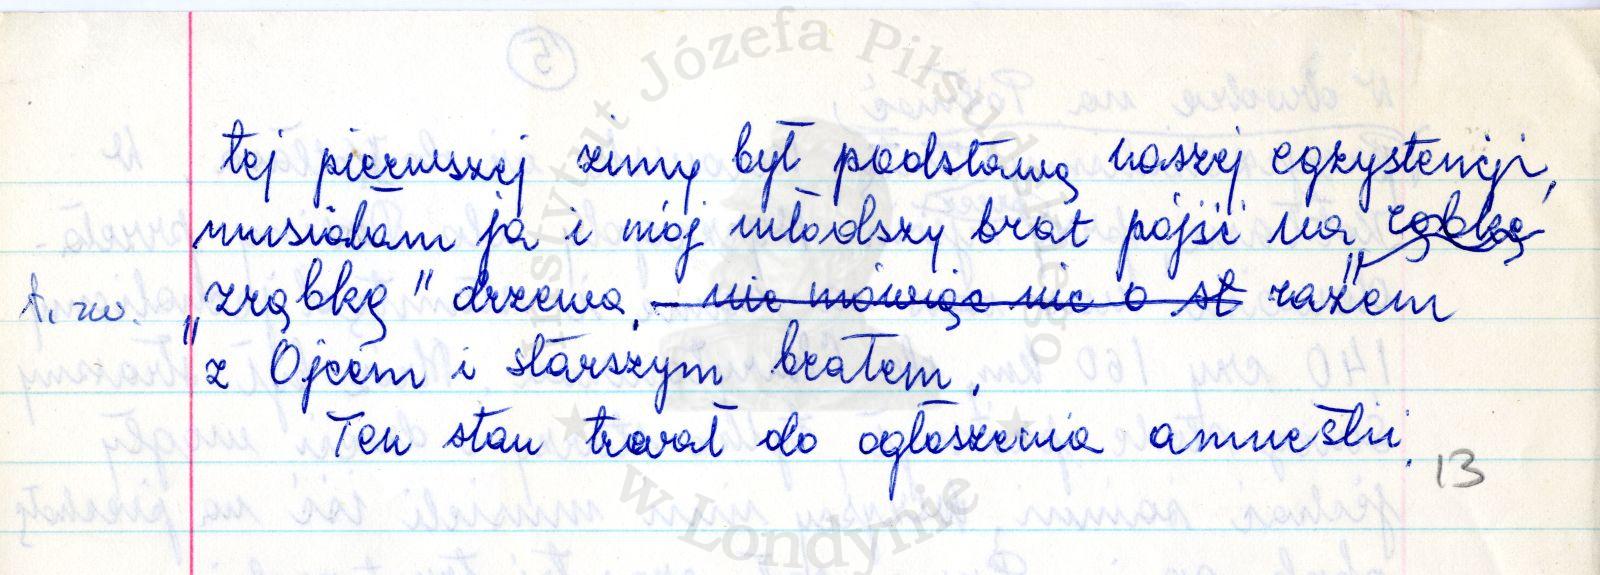 tej pierwszej zimy był podstawą naszej egzystencji,
musiałam ja i mój młodszy brat pójść na rąbkę
t. zw. „zrąbkę" drzewa, - nic mówiąc nic o st razem
z Ojcem i starszym bratem.
Ten stan trwał do ogłoszenia amnestii.
13
Instytut Józefa Piłsudskiego
w Londynie